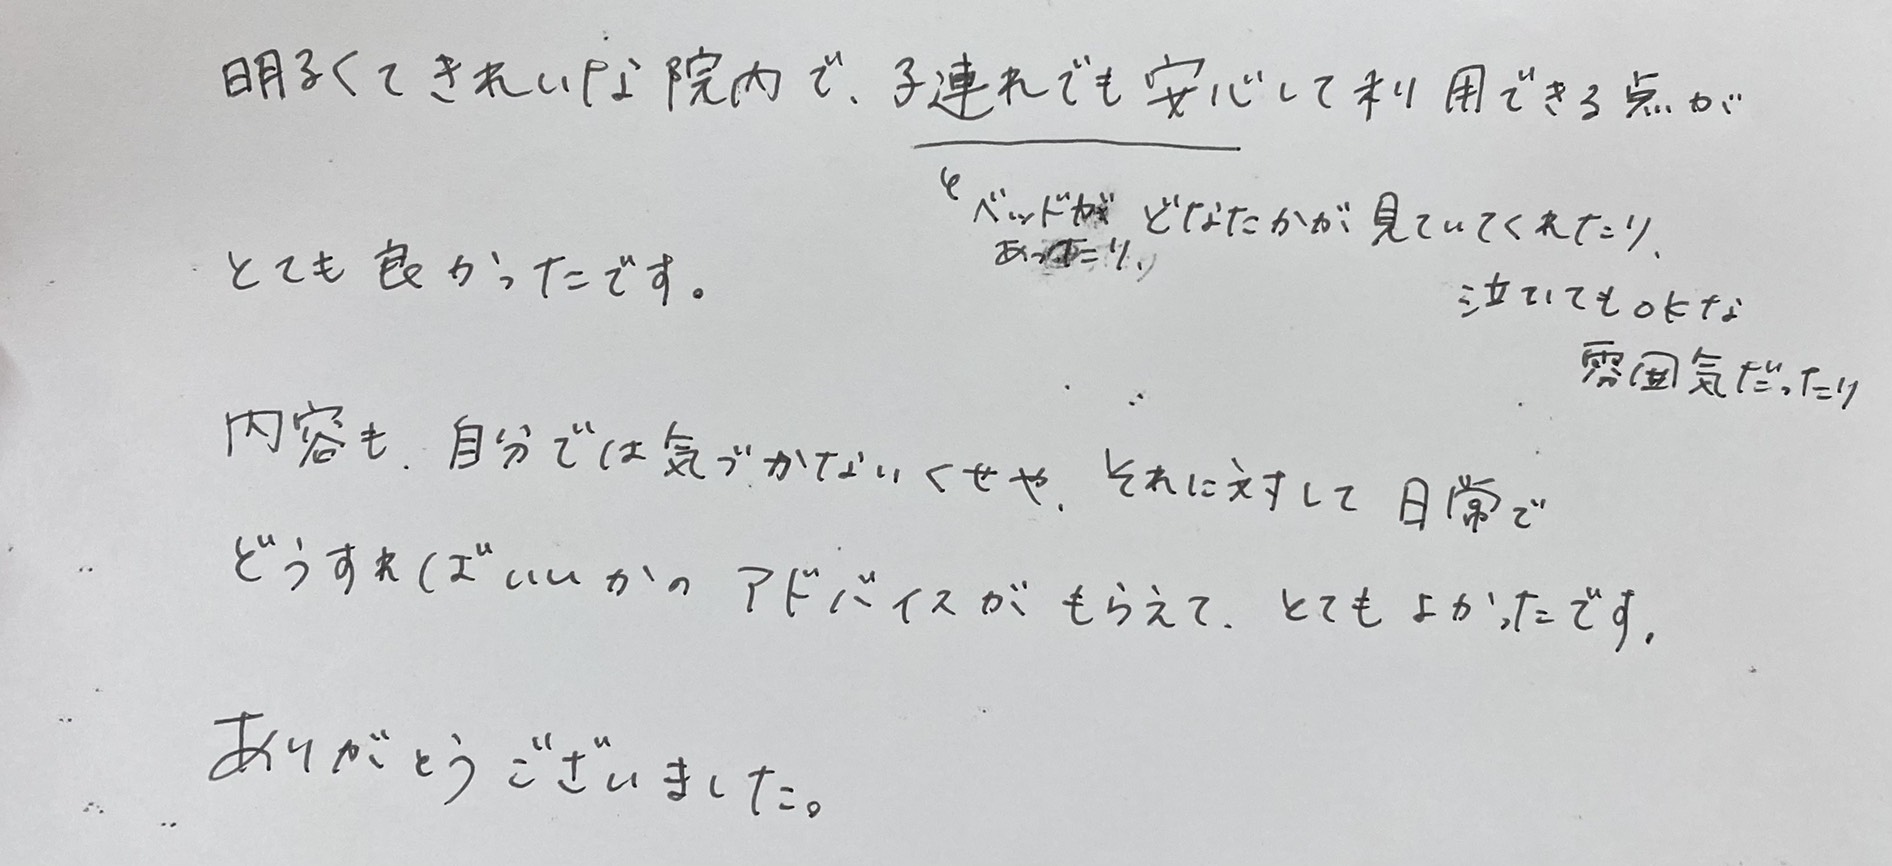 明るくてきれいな院内で、子連れでも安心して利用できる点が
ベッドが どなたかが見ていてくれたり、
あったり、
とても良かったです。
泣いてもOKな
雰囲気だったり
内容も、自分では気づかないくせや、それに対して日常で
どうすればいいかのアドバイスがもらえて、とてもよかったです。
ありがとうございました。